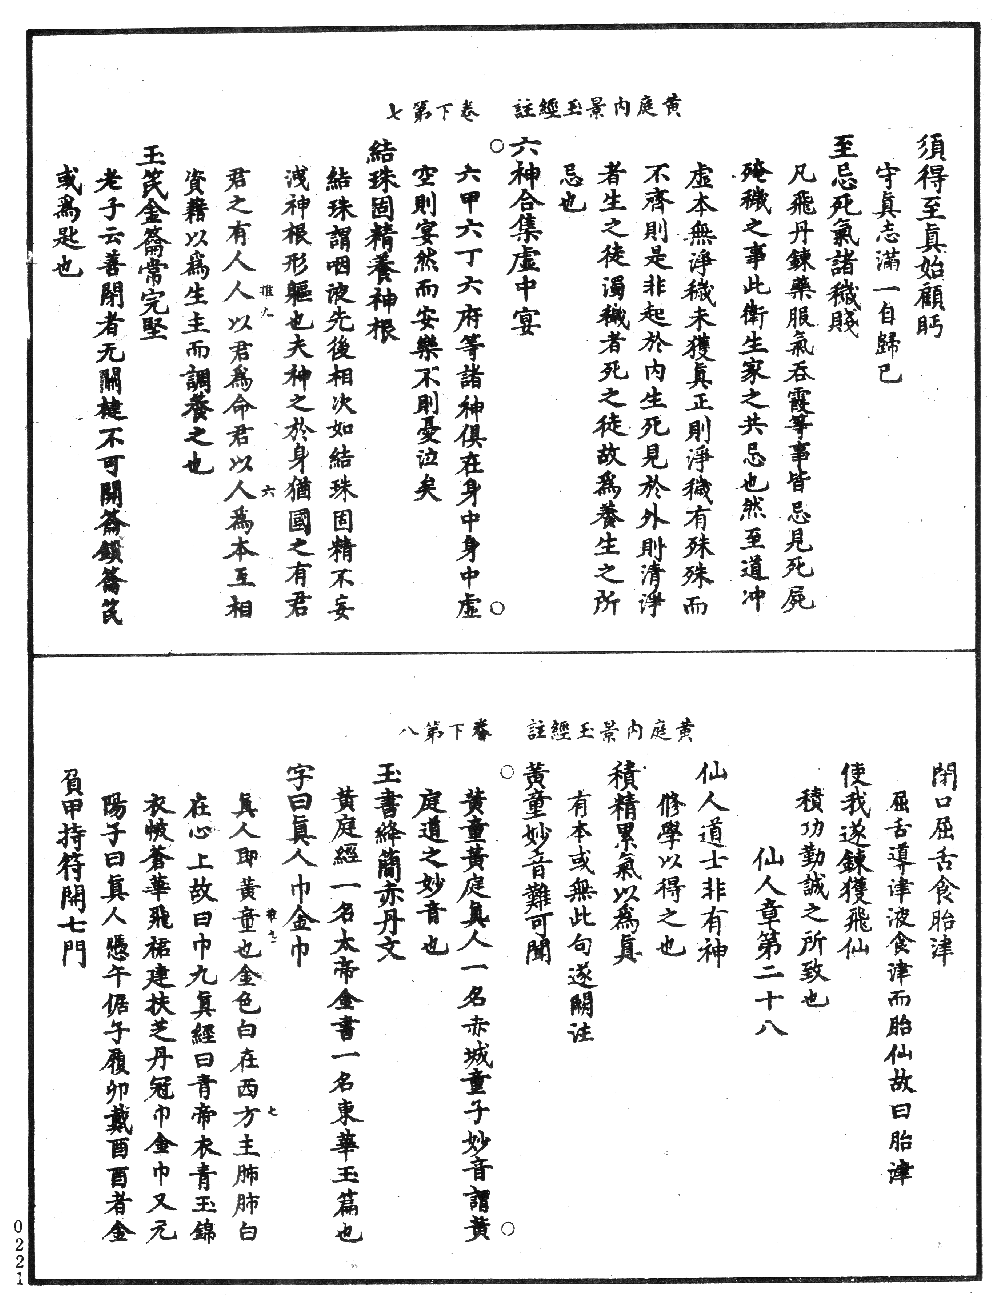 黃庭內景玉經註　卷下第七
須得至真始顧眄
守真志滿一自歸己
至忌死氣諸穢賤
凡飛丹鍊藥服氣吞霞等事皆忌見死屍
殗穢之事此衛生家之共忌也然至道冲
虛本無淨穢未獲真正則淨穢有殊殊而
不齊則是非起於內生死見於外則清淨
者生之徒濁穢者死之徒故爲養生之所
忌也
六神合集虛中宴
六甲六丁六府等諸神俱在身中身中虛
空則宴然而安樂不則憂泣矣
結珠固精養神根
結珠謂咽液先後相次如結珠固精不妄
洩神根形軀也夫神之於身猶國之有君
君之有人人以君爲命君以人爲本互相
資藉以爲生主而調養之也
玉笢金籥常完堅
老子云善閉者无關楗不可開籥鎖籥笢
或爲匙也
黃庭內景玉經註　卷下第八
閉口屈舌食胎津
屈舌導津液食津而胎仙故曰胎津
使我遂鍊獲飛仙
積功勤誠之所致也
仙人章第二十八
仙人道士非有神
修學以得之也
積精累氣以為真
有本或無此句遂闕注
黃童妙音難可聞
黃童黃庭真人一名赤城童子妙音謂黃
庭道之妙音也
玉書絳蕳赤丹文
黃庭經一名太帝金書一名東華玉篇也
字曰真人巾金巾
真人即黃童也金色白在西方主肺肺白
在心上故曰巾九真經曰青帝衣青玉錦
衣帔蒼華飛裙建扶芝丹冠巾金巾又元
陽子曰真人憑午倨子履卯戴酉酉者金
負甲持符開七門
0221